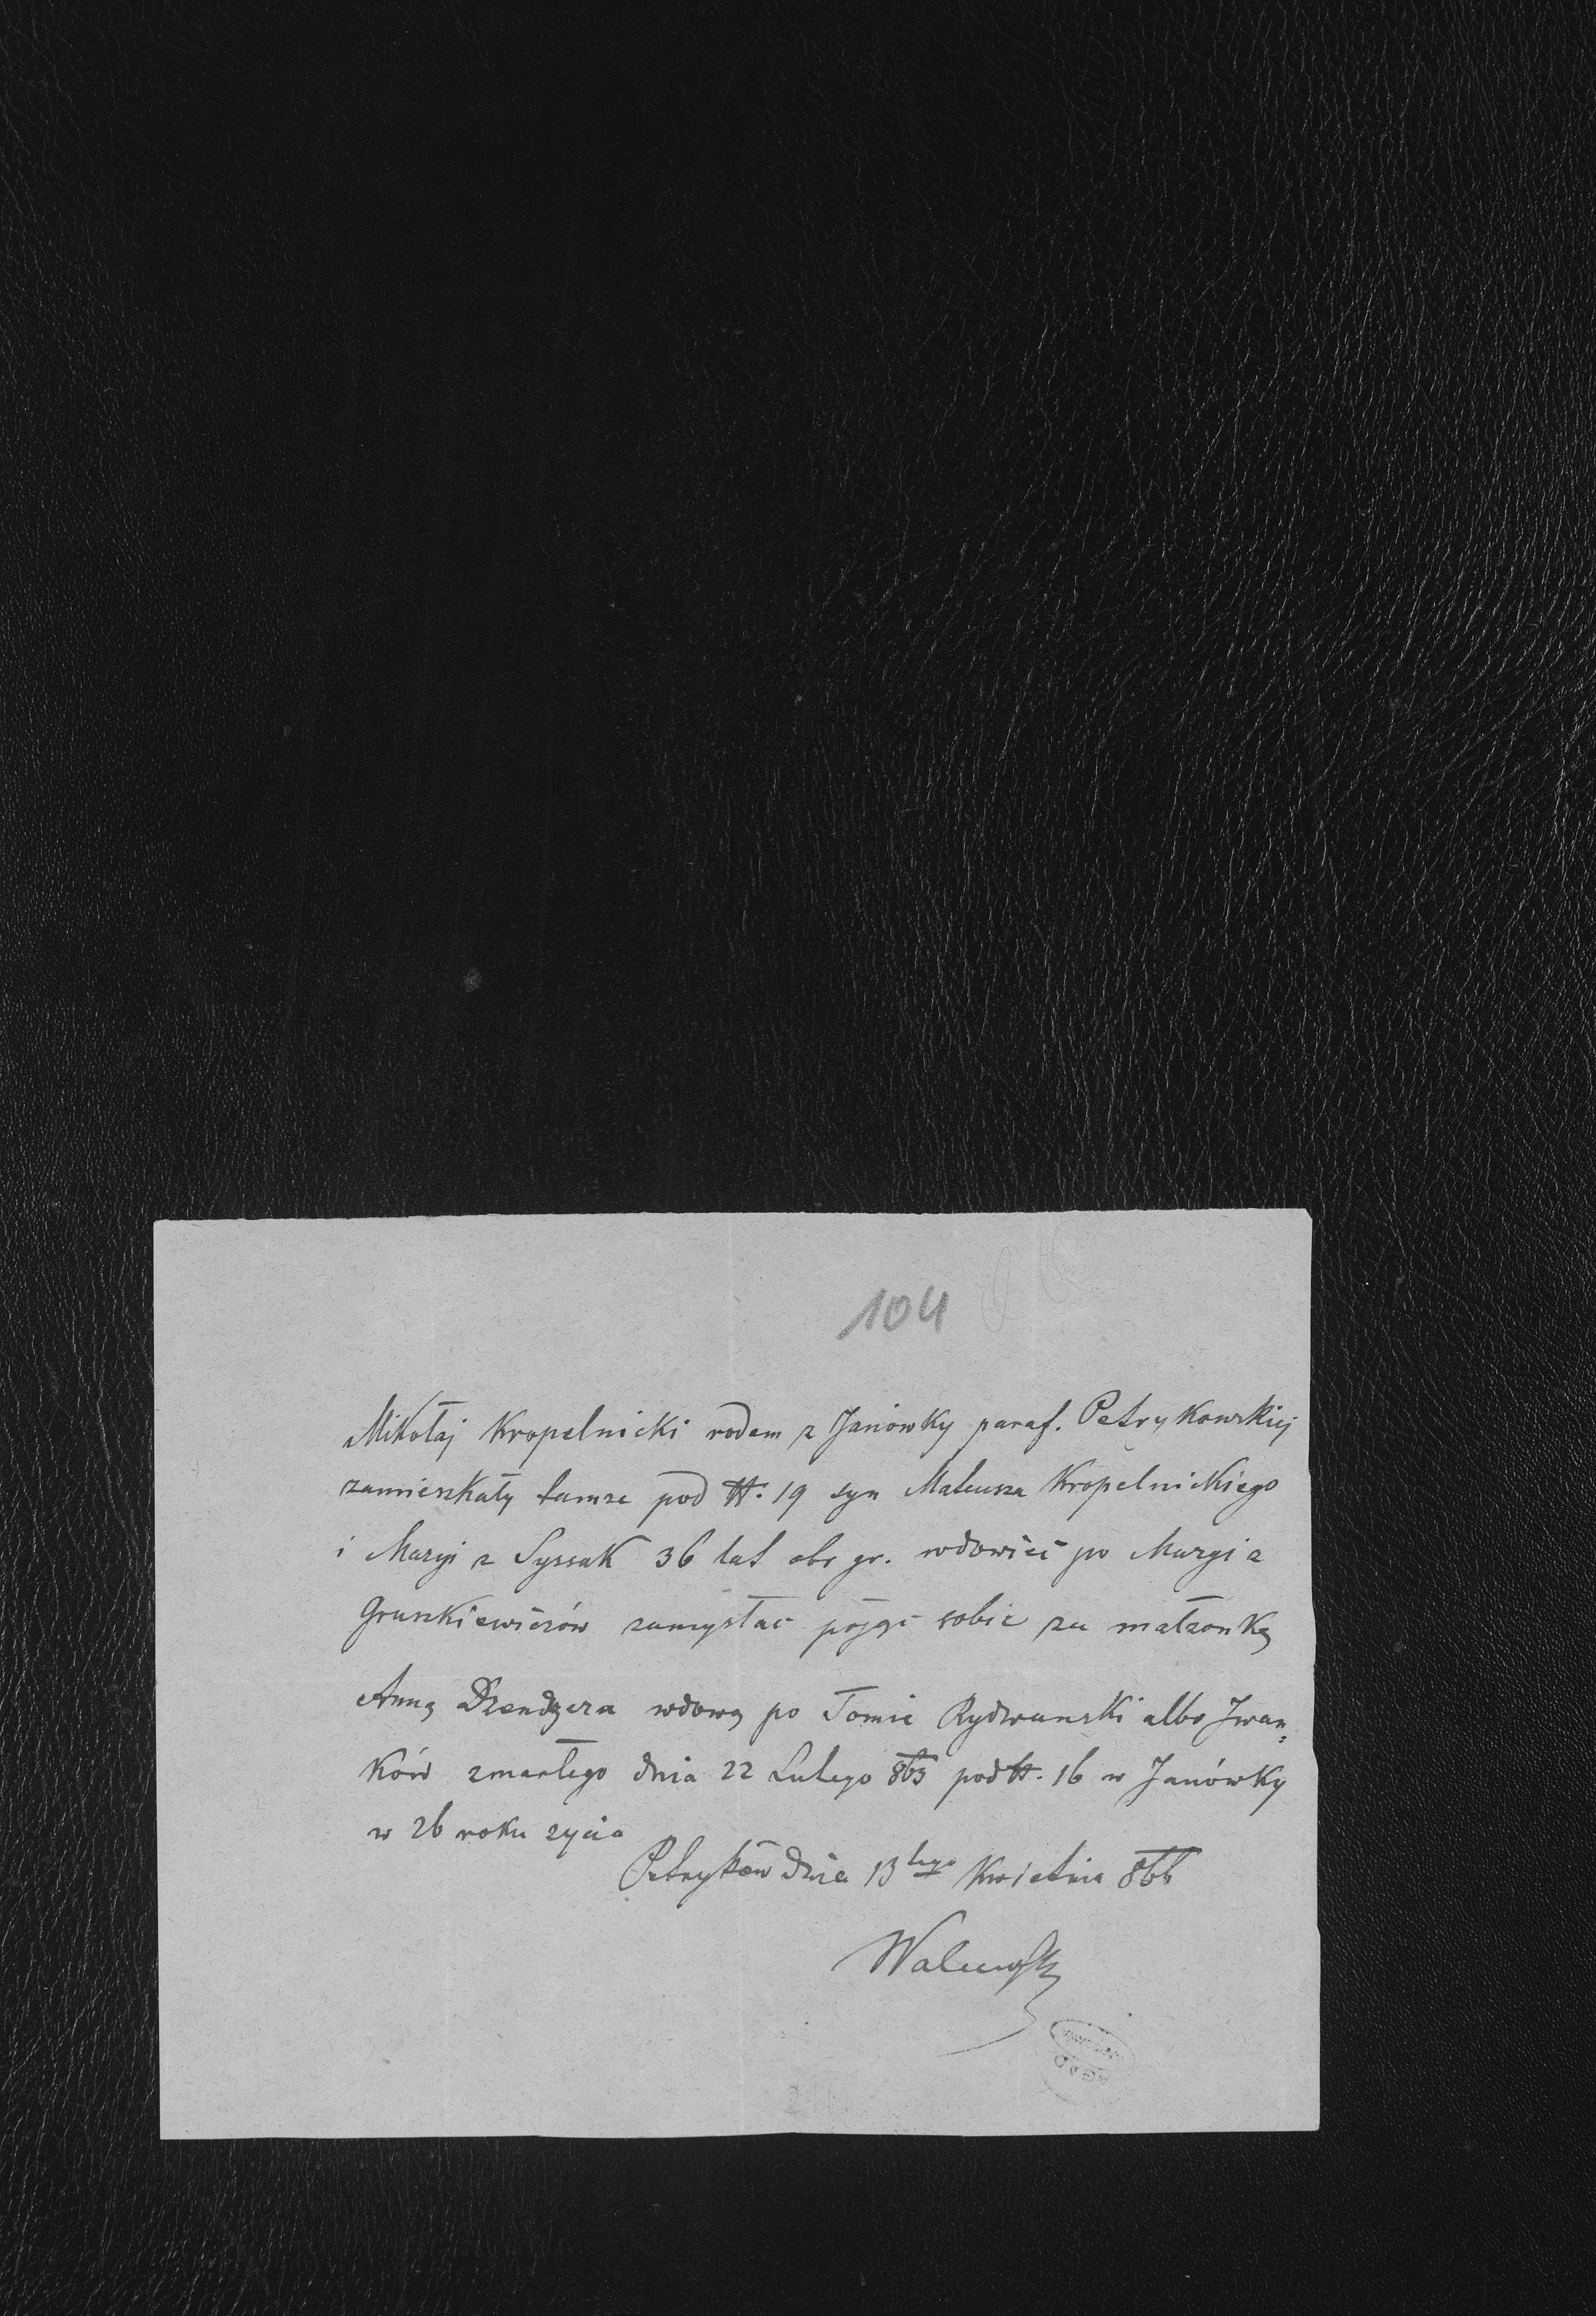 104
Mikołaj Kropelnicki rodem z Janówky paraf. Petrykowskiej
zamieszkały tamże pod N. 19 syn Mateusza Kropelnickiego
i Maryi z Syssak 36 lat obr gr. wdowiec po Maryi z
Gruszkiewiczów zamyślać pojąć sobie za małżonkę
Annę Dzendzera wdowę po Tomie Rydwanski albo Iwan=
ków zmarłego dnia 22 Lutego 863 pod N. 16 w Janówky
w 26 roku życia
Petryków dnia 13tego Kwietnia 866